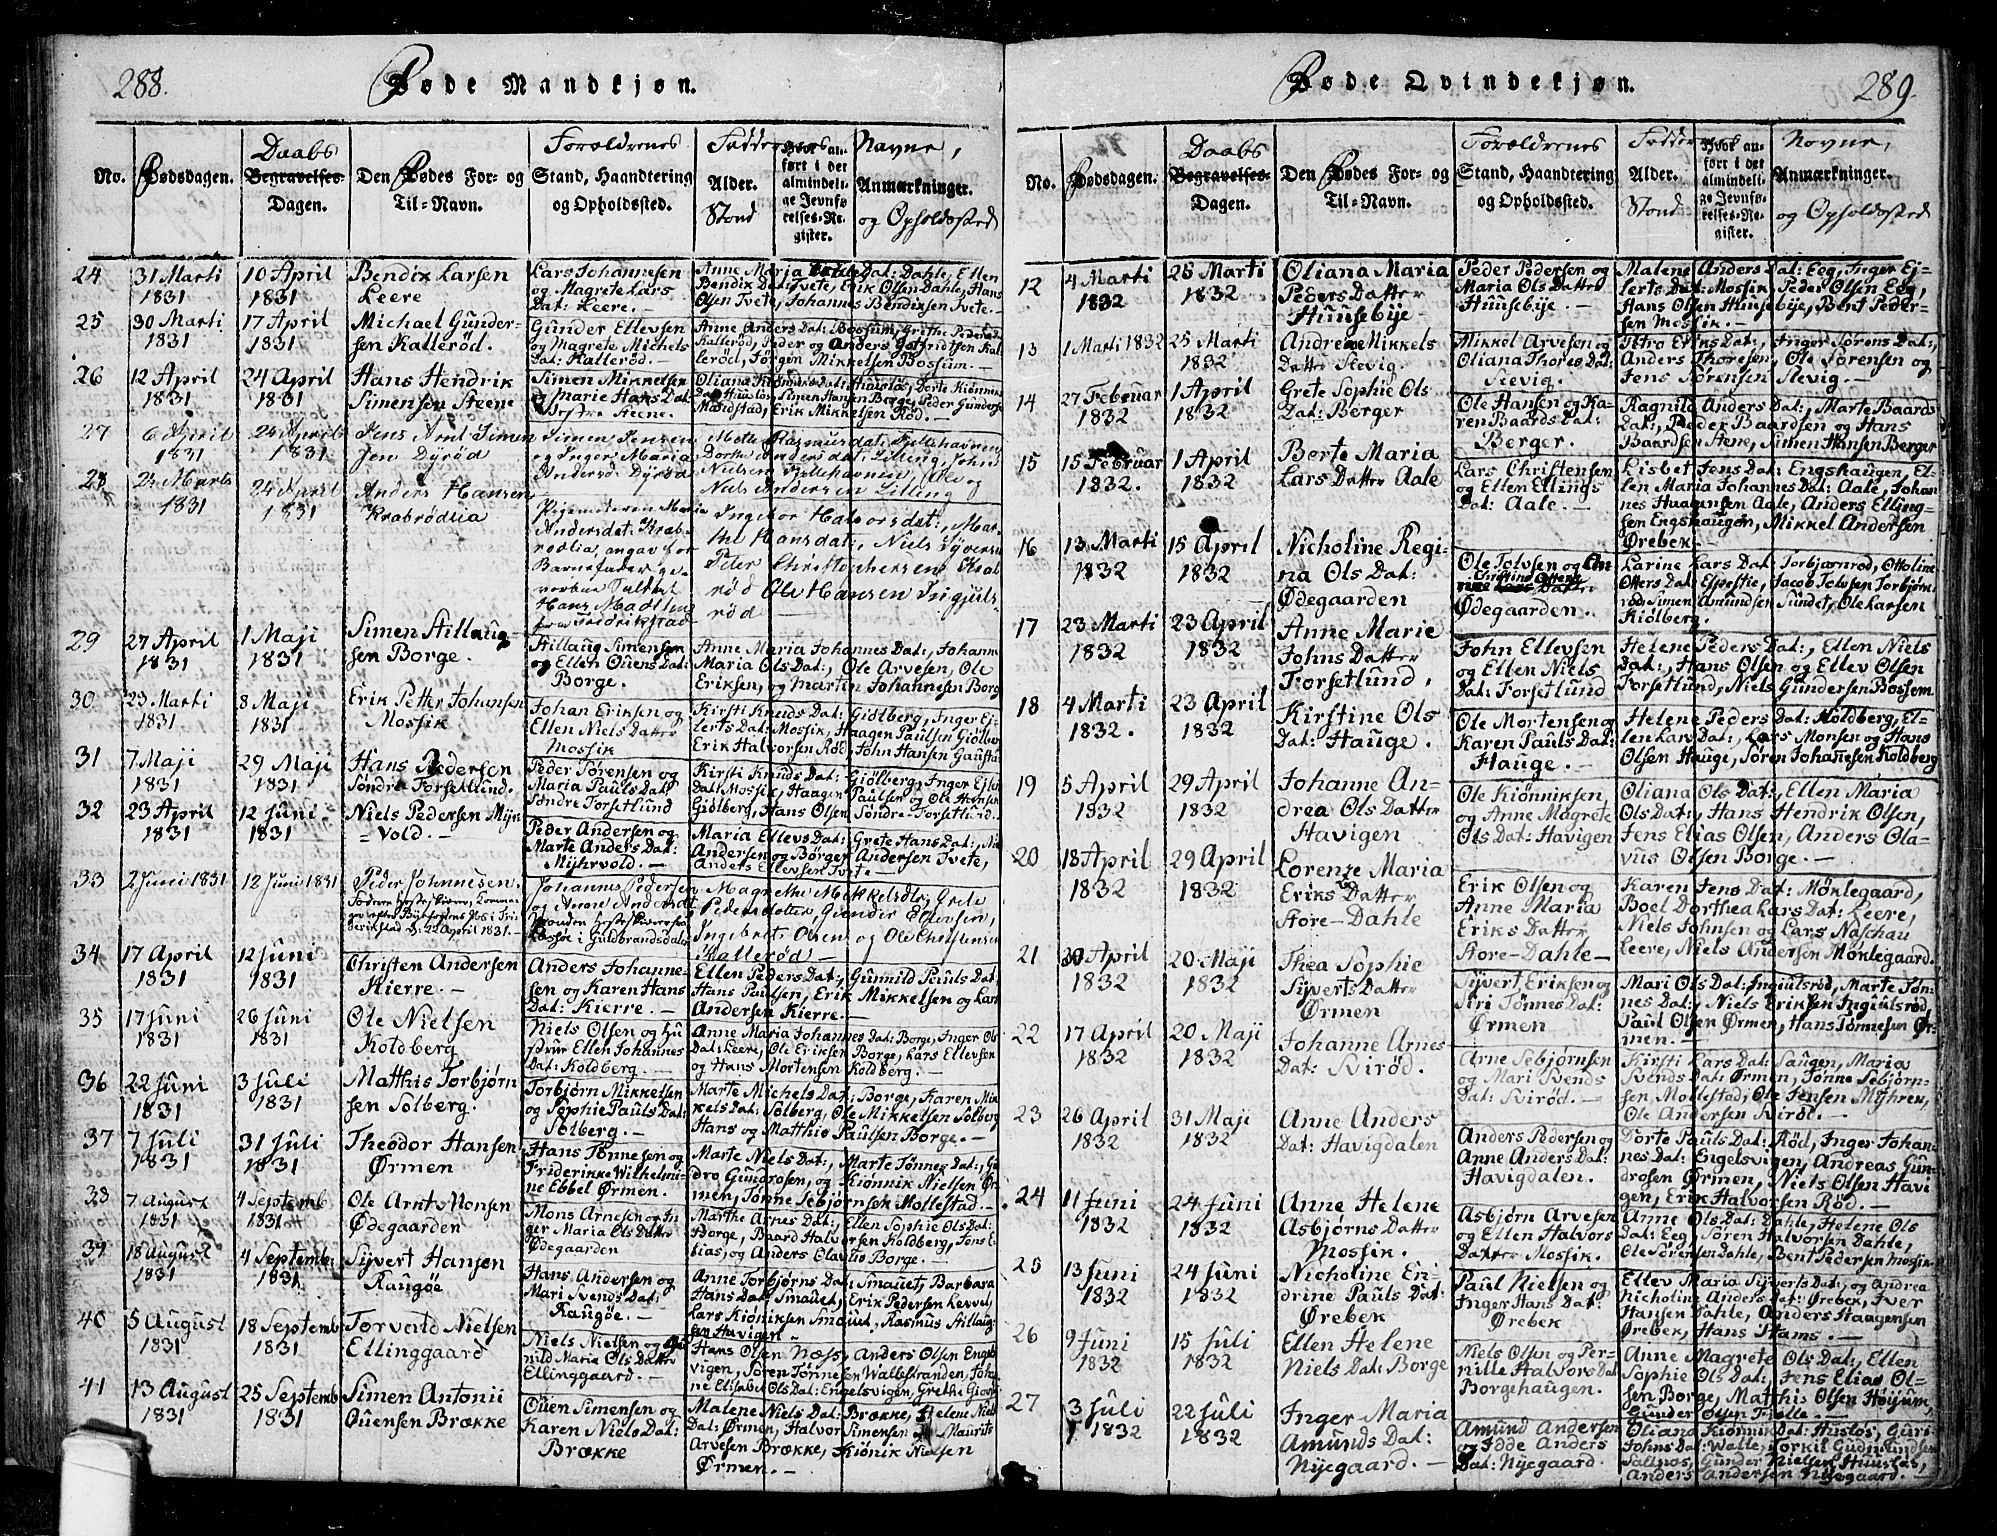 288.
Døde Mandkjøn.
No.
Dødsdagen.
Daabs
Begravelses-
Dagen.
Den Dødes For- og
Til-Navn.
Forældrenes
Stand, Haandtering
og Opholdssted.
Faddernes
Alder.
Stand
Hvor an-
ført i det
almindeli-
ge Jevnfø-
relses-Re-
gister.
Navne,
Anmærkninger.
og Opholdssted
24
31 Marti
1831
10 April
1831
Bendix Larsen
Leere
Lars Johannesen
og Magrete Lars
Dat: Leere.
Bendix Dat: Tvete, Erik Olsen Dahle, Hans
Olsen Tvete, Johannes Bendixsen Tvete.
25
30 Marti
1831
17 April
1831
Michael Gunder-
sen Kallerød.
Gunder Ellevsen
og Magrete Michels
Dat: Kallerød.
Anne Anders Dat: Bossum, Grithe Peders Dat
Kallerød, Peder og Anders Gotfridtsen Kal
lerød, Jørgen Mikkelsen Bossum.
26
12 April
1831
24 April
1831
Hans Hendrik
Simensen Steene
Simen Mikkelsen
og Marie Hans Dat
27
6 April
1831
24 April
1831
Jens Arnt Simen
sen Dyrød
Simen Jensen
og Inger Maria
Andersd: Dyrød
Niels Andersen Lilling
28
24 April
1831
Anders Hansen
Krabrødlia
Andersdat: Krab
rødlia, angav for
Barnefader
Ingebor Halvorsdat:, Mar-
the Hansdat:, Niels Syversen
Peter Christophersen Krab
rød Ole Hansen Ingjuls-
rød
29
27 April
1831
1 Maji
1831
Simen Hillaug-
sen Borge.
Hillaug Simensen
og Ellen Ouens Dat:
Borge.
Anne Maria Johannes Dat:, Johanne
Maria Ols Dat:, Ole Arvesen, Ole
Eriksen, og Martin Johannesen Borge
30
29 Marti
1831
8 Maji
1831
Erik Petter Johansen
Mossik
Johan Eriksen og
Ellen Niels Datter
Mossik
Kirsti Knuds Dat: Giölberg, Inger Ej
lerts Dat: Mossik, Haagen Paulsen Giölber
Erik Halvorsen Rød John Hansen Gaustad
31
7 Maji
1831
29 Maji
1831
Hans Pedersen
Söndre Forsetlund.
Peder Sørensen og
Maria Pauls Dat:
Søndre Forsetlund
Kirsti Knuds Dat: Giölberg, Inger Ejler
Dat: Mossik, Haagen Paulsen og Ole Hansen
Giölberg, Hans Olsen Söndre Forsetlund.
32
23 April
1831
12 Juni
1831
Niels Pedersen Myhr
vold.
Peder Andersen og
Marte Anders Dat:
Myhrvold.
Maria Ellevs Dat: Grete Hans Dat:, Ni
Andersen og Börger Andersen Tvete,
Anders Ellevsen Tvete.
33
2 Juni 1831
12 Juni 1831
Peder Johannesen.
Johannes Pedersen
og Anne Andersdt
Magnethe Mikkelsdtr, Grete
Pedersdatter, Gunder Ellevsen,
Ingebret Olsen og Ole Christensen
Kallerød.
34
17 April
1831
12 Juni
1831
Christen Andersen
Kierre.
Anders Johanne-
sen og Karen Hans
Dat: Kierre.
Ellen Peders Dat:, Gunnild Pouls Dat,
Hans Paulsen, Erik Mikkelsen og Lars
Andersen Kierre.
35
17 Juni
1831
26 Juni
1831
Ole Nielsen
Koldberg
Niels Olsen og Hu
strue Ellen Johannes
Dat: Koldberg.
Anne Maria Johannes Dat: Borge, Inger Ols
Dat: Leere, Ole Eriksen Borge, Lars Ellevsen
og Hans Mortensen Koldberg.
36
22 Juni
1831
3 Juli
1831
Matthis Torbjørn
sen Solberg.
Torbjørn Mikkelsen
og Sophie Pauls Dat:
Solberg.
Marte Michels Dat: Borge, Karen Mik
kels Dat: Solberg, Ole Mikkelsen Solberg
Hans og Matthis Paulsen Borge.
37
7 Juli
1831
31 Juli
1831
Theodor Hansen
Ørmen
Hans Tönnesen og
Friderikke Wilhelmi-
ne Ebbel Ørmen.
Marte Niels Dat:, Marte Tønnes Dat:, Gu
dro Gundrosen, og Kiönnik Nielsen Ør
men, Tønne Sebjörnsen Mollestad.
38
7 August
1831
4 Septemb
1831
Ole Arnt Monsen
Ødegaarden
Mons Arnesen og In
ger Maria Ols Datter
Ødegaarden
Marthe Arnes Dat:, Ellen Sophie Ols Dat:
Borge, Baard Halvorsen Koldberg, Jens E-
lias, og Anders Olavus Borge.
39
18 August
1831
4 Septemb:
1831
Syvert Hansen
Raugøe
Hans Andersen og
Mari Svends Dat:
Raugøe.
Anne Torbjørns Dat: Smauet, Barbara
Hans Dat: Smauet, Erik Pedersen Levvel,
Lars Kiöniksen Smauet, Rasmus Hillaug
sen Havigen.
40
5 August
1831
18 Septemb
1831
Torvald Nielsen
Ellinggaard
Niels Nielsen og Gu
nild Maria Ols Datter
Ellinggaard.
Hans Olsen Næss, Anders Olsen Engels
vigen, Sören Tønnesen Wallestranden, Johan
ne Elisabet Ols Dat: Engelsvigen, Grethe
41
13 August
1831
25 Septemb
1831
Simen Antonii
Ouensen Brække
Ouen Simensen og
Karen Niels Dat:
Brække
Malene Niels Dat: Brække, Helene Niels
Dat: Ørmen, Halvor Simensen og Maurits
Arvesen Brække, Kiönik Nielsen
Ørmen.
289
Døde Qvindekjøn.
No.
Dødsdagen.
Daabs
Begravelses-
Dagen.
Den Dødes For- og
Til-Navn.
Forældrenes
Stand, Haandtering
og Opholdssted.
Fadder
Alder.
Stand
Hvor an-
ført i det
almindeli-
ge Jevnfø-
relses-Re-
gister.
Navne,
Anmærkninger.
og Opholdssted
12
4 Marti
1832
25 Marti
1832
Oliana Maria
Peders Datter
Huusebÿe
Peder Pedersen og
Maria Ols Datter
Huusebÿe
Malene Anders Dat: Eeg, Inger Ej-
lerts Dat: Mossik, Peder Olsen Eeg,
Hans Olsen Huusebÿe, Bent Peder-
sen Mossik.
13
1 Marti 1832
25 Marti
1832
Andrea Mikkels
Datter Slevig.
Mikkel Arvesen og
Oliana Thores Dat:
Slevig.
Petro Eriks Dat:, Inger Sørens Dat:,
Anders Thoresen, Ole Sørensen og
Jens Sørensen Slevig.
14
27 Februar
1832
1 April
1832
Grete Sophie Ols
Dat: Berger
Ole Hansen og Ka-
ren Baards Dat:
Berger.
Ragnild Anders Dat:, Marte Baards
Dat:, Peder Baardsen og Hans
Baardsen Stene, Simen Hansen Berger
15
15 Februar
1832.
1 April
1832
Berte Maria
Lars Datter Aale
Lars Christensen
og Ellen Ellings
Dat: Aale.
Lisbet Jens Dat: Engshaugen, El-
len Maria Johannes Dat: Aale, Johan
nes Haagensen Aale, Anders Elling-
sen Engshaugen, Mikkel Andersen
Ørebek
16
13 Marti
1832
15 April
1832
Nicholine Regi-
na Ols Dat:
Ødegaarden
Ole Tolvsen og An-
Ødegaarden.
Karine Lars Dat: Torbjørnrød, Ottoline
Otters Dat: Espestie, Jacob Tolvsen Torbjørn
rød, Simen Amundsen Sundet, Ole Larsen
Kiölberg.
17
23 Marti
1832
23 April
1832
Anne Marie
Johns Datter
Forsetlund,
John Ellevsen
og Ellen Niels
Dat: Forsetlund
Helene Peders Dat:, Ellen Niels
Dat:, Hans Olsen og Ellev Olsen
Forsetlund, Niels Gundersen Bossum
18
4 Marti
1832.
23 April
1832
Kirstine Ols
Dat: Hauge.
Ole Mortensen og
Karen Pauls Dat:
Hauge.
Helene Peders Dat: Koldberg, El-
len Lars Dat:, Lars Monsen og Hans
Olsen Hauge, Sören Johannesen Koldberg
19
5 April
1832
29 April
1832
Johanne An-
drea Ols Datter
Havigen
Ole Kiönniksen
og Anne Magrete
Ols Dat: Havigen
Oliana Ols Dat:, Ellen Maria
Ols Dat:, Hans Hendrik Olsen,
Jens Elias Olsen, Anders Ola-
vus Olsen Borge.
20
18 April
1832
29 April
1832
Lorenze Maria
Eriks Datter
Store-Dahle
Erik Olsen og
Anne Maria
Eriks Datter
Store-Dahle
Karen Jens Dat: Möklegaard,
Boel Dorthea Lars Dat: Leere,
Niels Johnsen og Lars Naschau
Leere, Niels Andersen Möklegaard.
21
April
1832
20 Maji
1832
Thea Sophie
Syverts Datter
Ørmen
Syvert Eriksen og
Siri Tønnes Dat:
Ørmen
Mari Ols Dat: Ingiulsrød, Marte Tøn-
nes Dat:, Niels Eriksen Ingiulsrød,
Paul Olsen Ørmen, Hans Tønnesen Ør-
men.
22
17 April
1832
20 Maji
1832
Johanne Arnes
Dat: Svirød.
Arne Sebjørnsen
og Mari Svends
Dat: Svirød
Kirsti Lars Dat: Haugen, Maria
Svends Dat: Ørmen, Tønne Sebjørn-
sen Mollestad, Ole Jensen Myhren,
Ole Andersen Svirød.
23
26 April
1832
31 Maji
1832
Anne Anders
Dat: Havigdalen
Anders Pedersen og
Anne Anders Dat:
Havigdalen.
Dorte Pauls Dat: Rød, Inger Johan-
nes Dat: Engelsvigen, Andreas Gun-
drosen Ørmen, Niels Olsen Havi
gen, Erik Halvorsen Rød.
24
11 Juni
1832
24 Juni
1832
Anne Helene
Asbjørns Datter
Mossik.
Asbjørn Arvesen
og Ellen Halvors
Datter Mossik.
Anne Ols Dat: Dahle, Helene Ols
Dat: Eeg, Søren Halvorsen Dahle,
Ole Sørensen Dahle, Bent Pedersen Mossik
25
13 Juni
1832
24 Juni
1832
Nicholine En-
drine Pauls Dat:
Ørebek
Paul Nielsen og
Inger Hans Dat:
Ørebek
Ellev Maria Syverts Dat:, og Andrea
Nicholine Anders Dat: Ørebek, Iver
Hansen Dahle, Anders Haagensen
Ørebek, Hans Hams.
26
9 Juni
1832
15 Juli
1832
Ellen Helene
Niels Dat: Borge
Niels Olsen og Per-
nille Halvors Dat:
Borgehaugen.
Anne Magrete Ols Dat:, Ellen
Sophie Ols Dat:, Jens Elias Ol-
sen Borge, Matthis Olsen Höyum,
Gunder Olsen Fjelle.
27
3 Juli
1832
22 Juli
1832
Inger Maria
Amunds Dat:
Nyegaard.
Amund Andersen
og Idde Anders
Dat: Nyegaard.
Oliana Kiönnik Dat: Huslös, Guri
Johns Dat: Walle, Torkil Gudmundsen
Saltnæs, Gunder Nielsen Huuslös,
Anders Andersen Nyegaard.